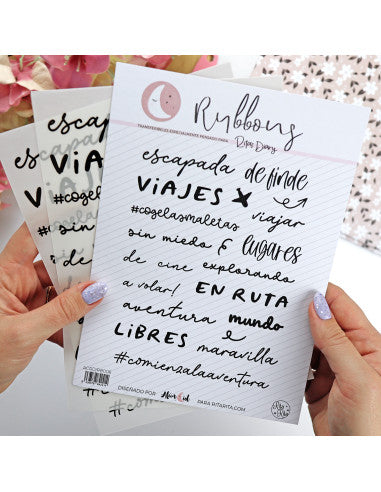 Rubbons
TRANSFERIBLES ESPECIALMENTE PENSADO PARA
Ritas Diary
escapada de finde
VIAJES X viajar
#cogelasmaletas
sin miedo & lugares
de cine explorando
a volar! EN RUTA
aventura mundo
LIBRES maravilla
#comienzalaaventura
DISEÑADO POR: PARA RITARITA.COM
escapa
VIA
#coge
sin
de
a
ave
LI
#co